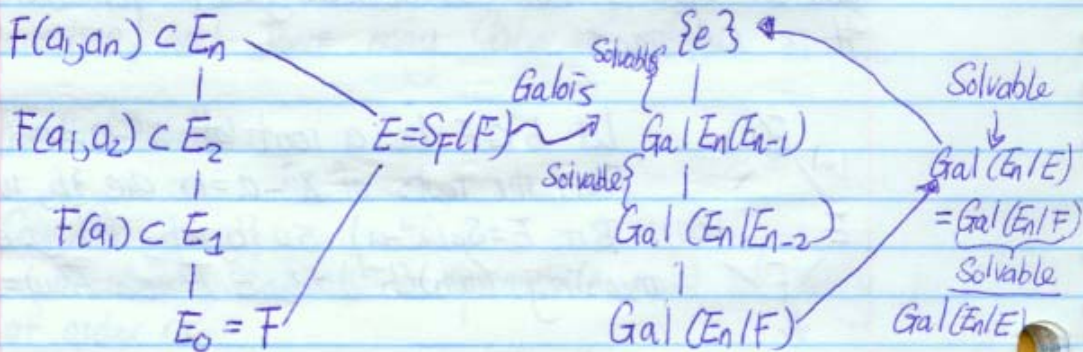 F(a₁,aₙ) ⊂ Eₙ
F(a₁,a₂) ⊂ E₂
F(a₁) ⊂ E₁
E₀ = F
E=S_F(F)
Galois
Solvable
{e}
Gal Eₙ(Eₙ₋₁)
Solvable
Gal (Eₙ/Eₙ₋₂)
Gal (Eₙ/F)
Solvable
Gal (Eₙ/E)
= Gal (Eₙ/F)
Solvable
Gal (Eₙ/E)